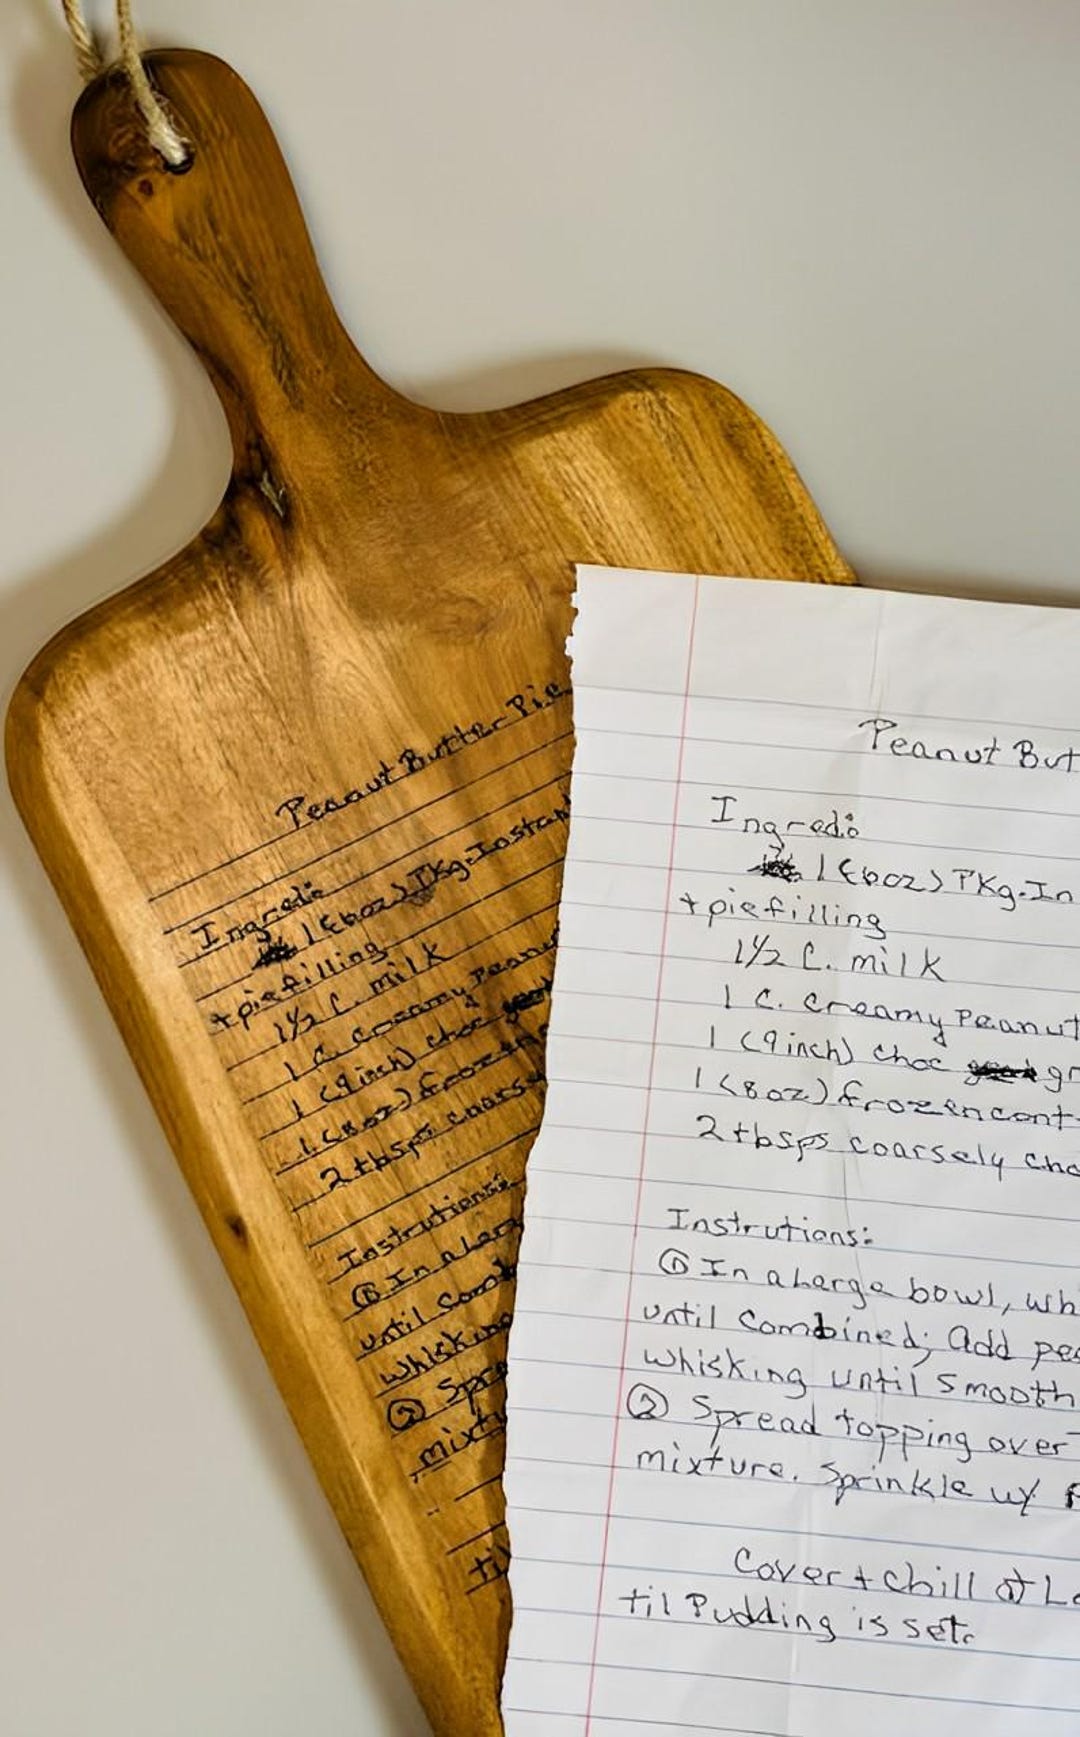 Peanut Butter Pie
Ingredi:
1 (6oz) PKg. Instan
+ piefilling
1½ C. milk
1 C. creamy Peanut
1 (9inch) choc
1 (8oz) frozen
2 tbsps coars
Instrutions:
① In a Larg
until Comb
whisking
② Spre
mixtu
til
Peanut But
Ingredi:
1 (6oz) PKg. In
+ piefilling
1½ C. milk
1 C. creamy Peanut
1 (9inch) choc gr
1 (8oz) frozen cont
2 tbsps coarsely cho
Instrutions:
① In a Large bowl, wh
until Combined; Add pea
whisking until smooth
② Spread topping over
mixture. Sprinkle w/
Cover + chill at Le
til Pudding is set.